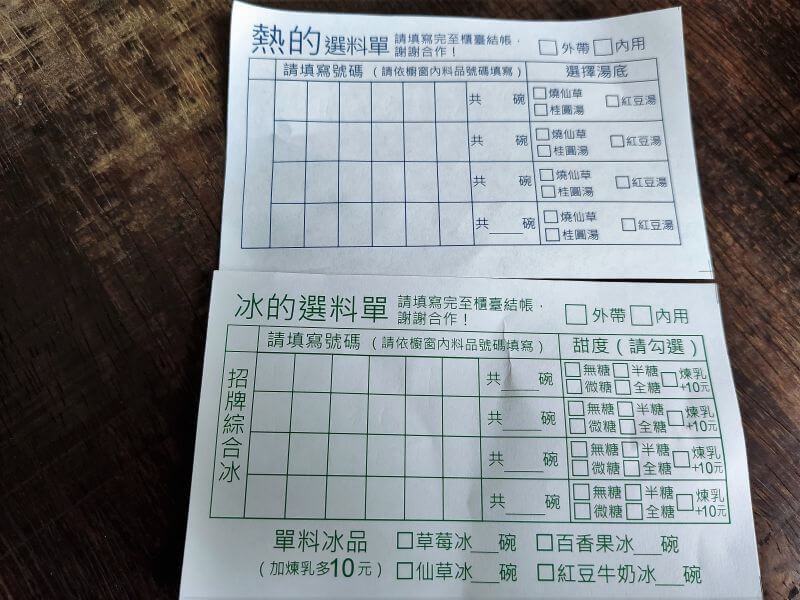 熱的選料單 請填寫完至櫃臺結帳，謝謝合作！ □外帶□內用
請填寫號碼（請依櫥窗內料品號碼填寫） 選擇湯底
共 碗 □燒仙草 □紅豆湯
□桂圓湯
共 碗 □燒仙草 □紅豆湯
□桂圓湯
共 碗 □燒仙草 □紅豆湯
□桂圓湯
共____碗 □燒仙草 □紅豆湯
□桂圓湯
冰的選料單 請填寫完至櫃臺結帳，謝謝合作！ □外帶□內用
請填寫號碼（請依櫥窗內料品號碼填寫） 甜度（請勾選）
招牌綜合冰
共____碗 □無糖□半糖□煉乳+10元
□微糖□全糖
共____碗 □無糖□半糖□煉乳+10元
□微糖□全糖
共____碗 □無糖□半糖□煉乳+10元
□微糖□全糖
共____碗 □無糖□半糖□煉乳+10元
□微糖□全糖
單料冰品 □草莓冰___碗 □百香果冰___碗
（加煉乳多10元） □仙草冰___碗 □紅豆牛奶冰___碗